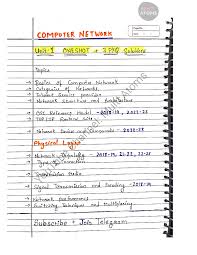 COMPUTER NETWORK
Unit-1 ONESHOT + PYQ Solution
Topics
Basics of Computer Network
Categories of Networks
Network Structure and Architecture
OSI Reference Model - 2018-19, 2022-23
TCP/IP
Network Devices and Components - 2022-23
Physical Layer
Network - 2018-19, 21-22, 22-23
Types of Connection
Transmission Media
Signal Transmission and Encoding - 2018-19
Network Performance
Switching Techniques and Multiplexing
Subscribe + Join Telegram